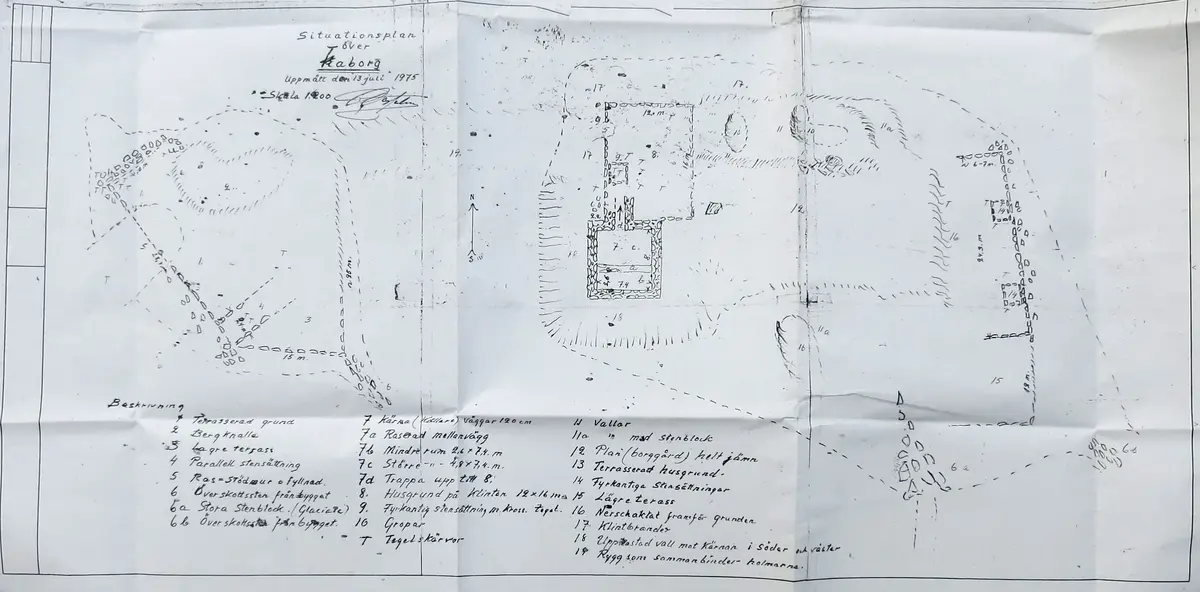 Situationsplan
över
Kaborg
Uppmätt den 13 juli 1975
Skala 1:200
N
S
17
17.
12 m.
5
8.
9.T
10
11
10
11a
19.
12
7. C.
a
b
7.4
18
16
11a
10
15
W 6-7 m.
14
24.3 m.
14
12 m.
6a
2.
T
3
4
5
15 m.
6
Beskrivning
1 Terrasserad grund
2 Bergknalle
3 Lägre terrass
4 Parallell stensättning
5 Ras=Stödmur o Fyllnad.
6 Överskottssten från bygget
6a Stora Stenblock. (Glaciala)
6b Överskottssten från bygget.
7 Kärna (Källare) Väggar 120 cm
7a Raserad mellanvägg
7b Mindre rum 2.6 x 7.4. m
7c Större -"- 4,8 x 7,4. m.
7d Trappa upp till 8.
8. Husgrund på Klinten 12 x 16 ma
9. Fyrkantig stensättning m. kross. tegel.
10 Gropar
T Tegelskärvor
11 Vallar
11a " med stenblock
12 Plan (borggård) helt jämn
13 Terrasserad husgrund
14 Fyrkantiga Stensättningar
15 Lägre terass
16 Nerschaktat framför grunden
17 Klintbranter
18 Uppkastad vall mot Kärnan i Söder och väster
19 Rygg som sammanbinder holmarna.